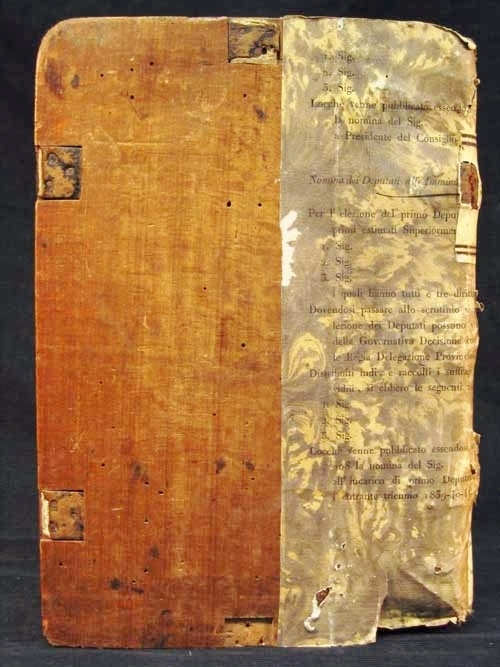 1. Sig.
2. Sig.
3. Sig.
Locche venne pubblicato essend
la nomina del Sig.
a Presidente del Consiglio
Nomina dei Deputati
Per l' elezione del primo Depu
primi estimati Superiorme
1. Sig.
2. Sig.
3. Sig.
i quali hanno tutti e tre diri
Dovendosi passare allo scrutinio s
lezione dei Deputati possono
della Governativa Decisione
le Regia Delegazione Provinc
Distribuiti indi, e raccolti i suffra
si ebbero le seguenti
1. Sig.
2. Sig.
3. Sig.
Locche venne pubblicato essendo
la nomina del Sig.
all' incarico di primo Deputa
l' entrante triennio 1839-40-